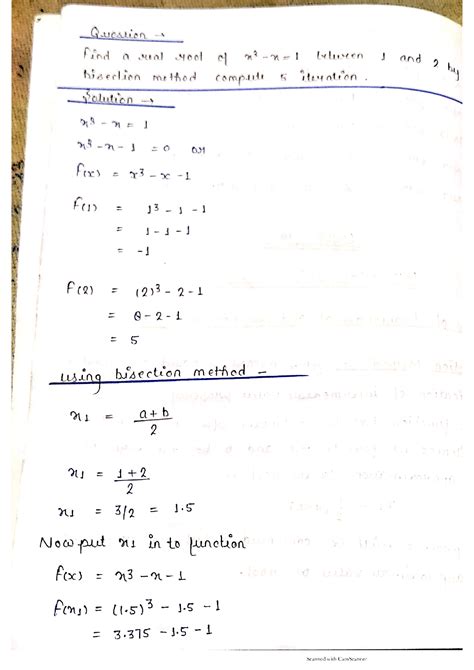 Question →
Find a real root of x³ - x = 1 between 1 and 2 by
bisection method compute 5 iteration.
Solution →
x³ - x = 1
x³ - x - 1 = 0 or
f(x) = x³ - x - 1
f(1) = 1³ - 1 - 1
= 1 - 1 - 1
= -1
f(2) = (2)³ - 2 - 1
= 8 - 2 - 1
= 5
using bisection method -
x₁ = a+b / 2
x₁ = 1+2 / 2
x₁ = 3/2 = 1.5
Now put x₁ in to function
f(x) = x³ - x - 1
f(x₁) = (1.5)³ - 1.5 - 1
= 3.375 - 1.5 - 1
Scanned with CamScanner